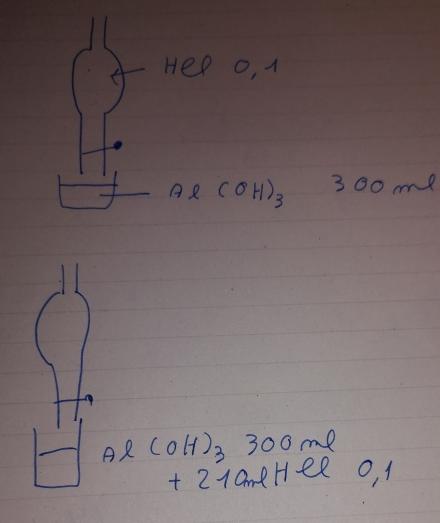 HCl 0,1
Al(OH)3 300ml
Al(OH)3 300ml
+ 210ml HCl 0,1